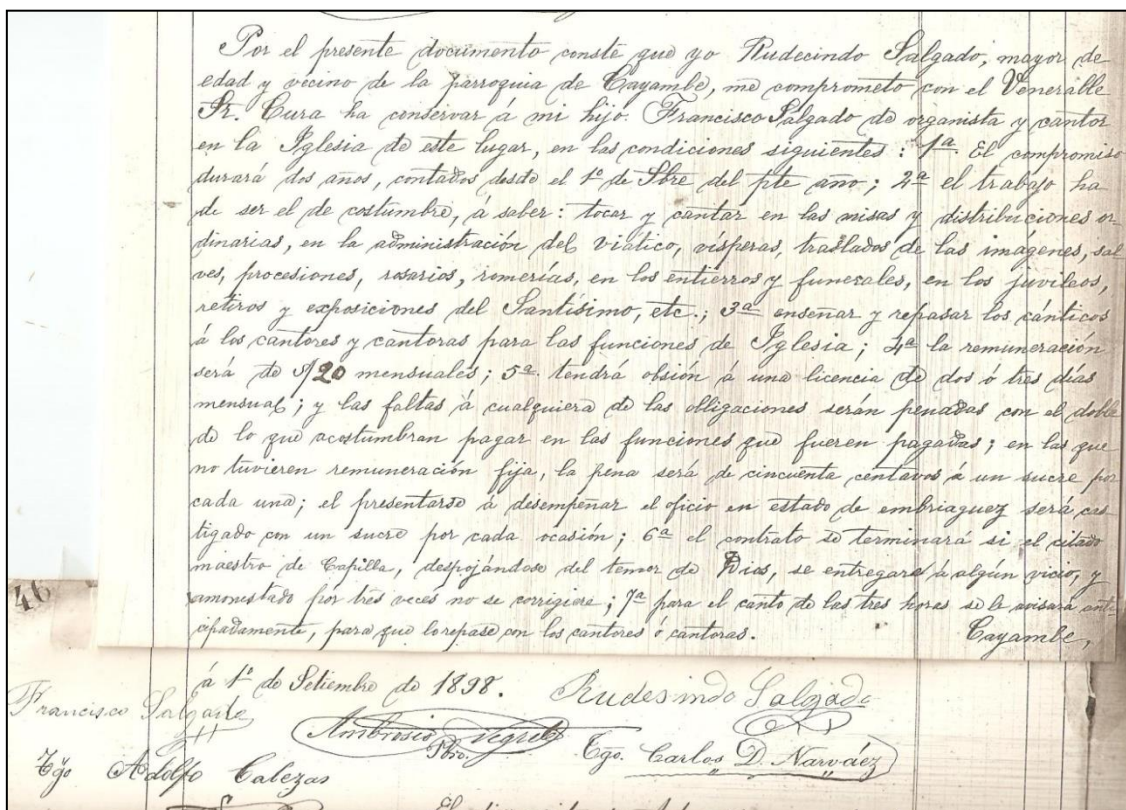 Por el presente documento conste que yo Rudecindo Salgado, mayor de
edad y vecino de la parroquia de Cayambe, me comprometo con el Venerable
Sr. Cura ha conservar á mi hijo Francisco Salgado de organista y cantor
en la Iglesia de este lugar, en las condiciones siguientes: 1ª El compromiso
durará dos años, contados desde el 1º de Sbre del pte año; 2ª el trabajo ha
de ser el de costumbre, á saber: tocar y cantar en las misas y distribuciones or
dinarias, en la administración del viatico, vísperas, traslados de las imágenes, sal
ves, procesiones, rosarios, romerías, en los entierros y funerales, en los juvileos,
retiros y exposiciones del Santísimo, etc.; 3ª enseñar y repasar los cánticos
á los cantores y cantoras para las funciones de Iglesia; 4ª la remuneración
será de S/20 mensuales; 5ª tendrá obsión á una licencia de dos ó tres días
mensual; y las faltas á cualquiera de las obligaciones serán penadas con el doble
de lo que acostumbran pagar en las funciones que fueren pagadas; en las que
no tuvieren remuneración fija, la pena será de cincuenta centavos á un sucre por
cada una; el presentarse á desempeñar el oficio en estado de embriaguez será cas
tigado con un sucre por cada ocasión; 6ª el contrato se terminará si el citado
maestro de Capilla, despojándose del temor de Dios, se entregare á algún vicio, y
amonestado por tres veces no se corrigiere; 7ª para el canto de las tres horas se le avisará anti
cipadamente, para que lo repase con los cantores ó cantoras. Cayambe,
46
á 1º de Setiembre de 1898. Rudesindo Salgado
Francisco Salgado
Ambrosio Pbro. Tgo. Carlos D. Narváez
Tgo Adolfo Cabezas